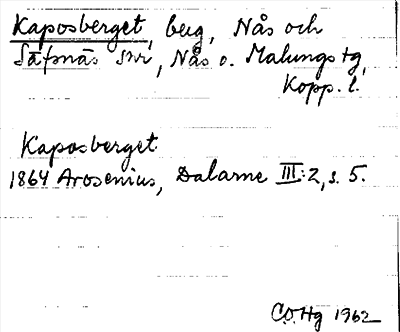 Kaposberget, berg, Nås och
Säfsnäs snr, Nås o. Malungs tg,
Kopp. l.
Kaposberget
1864 Arosenius, Dalarne III:2, s. 5.
C.O. Hg 1962